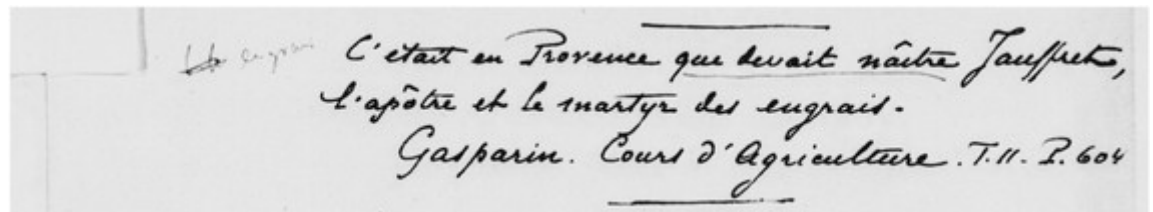 engrais C'était en Provence que devait nâitre Jauffret,
l'apôtre et le martyr des engrais.
Gasparin. Cours d'Agriculture. T.II. P. 604